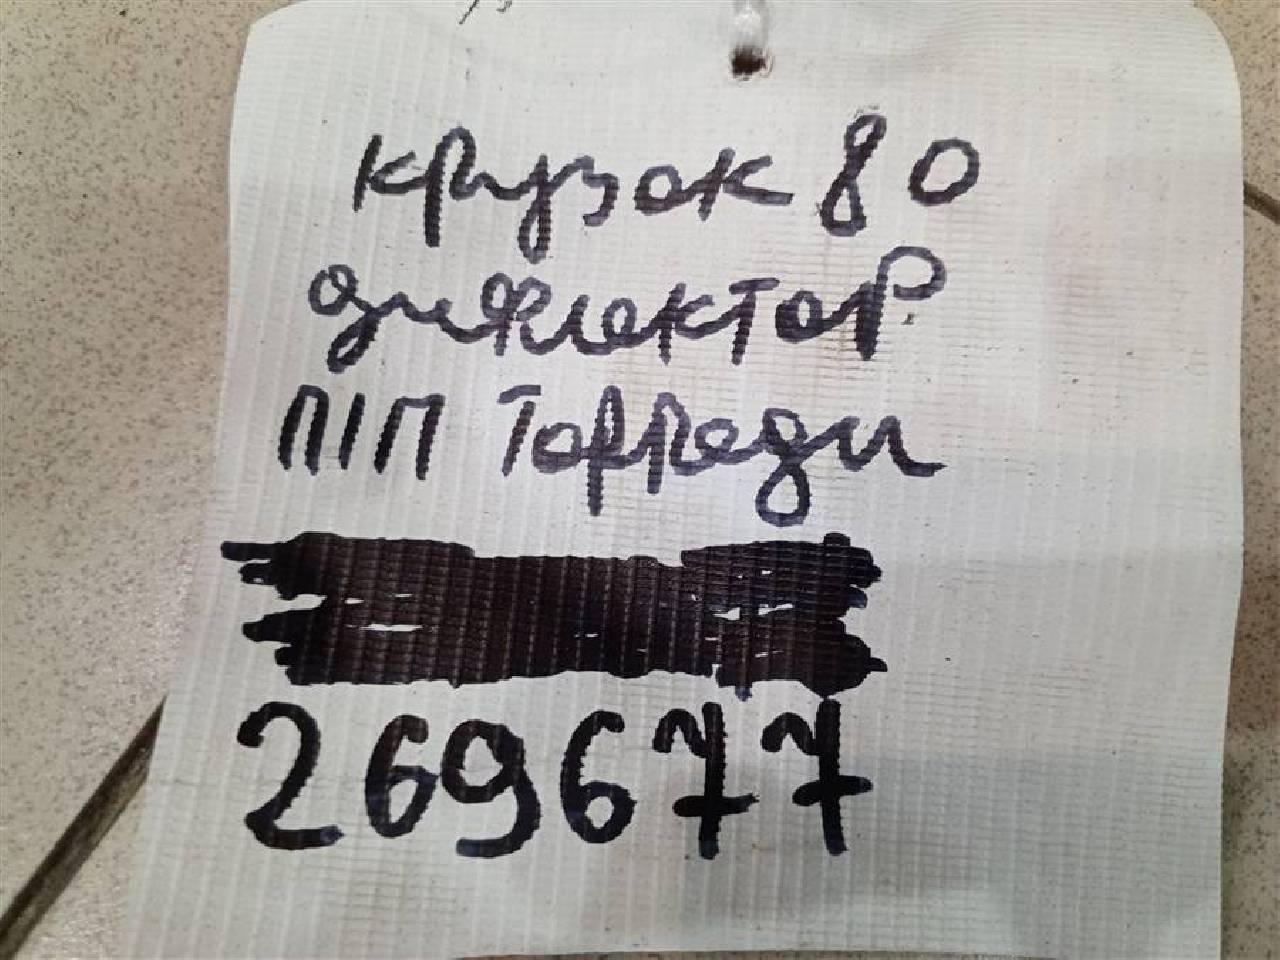 крузак 80
дифлектор
П/П Торпеди
269677